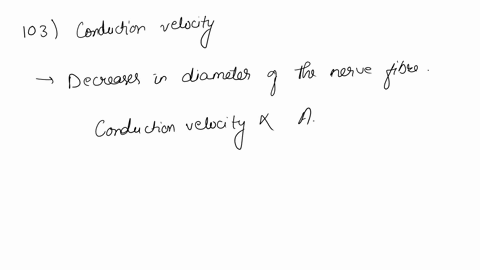 103) Conduction velocity
→ Decreases in diameter of the nerve fibre.
Conduction velocity ∝